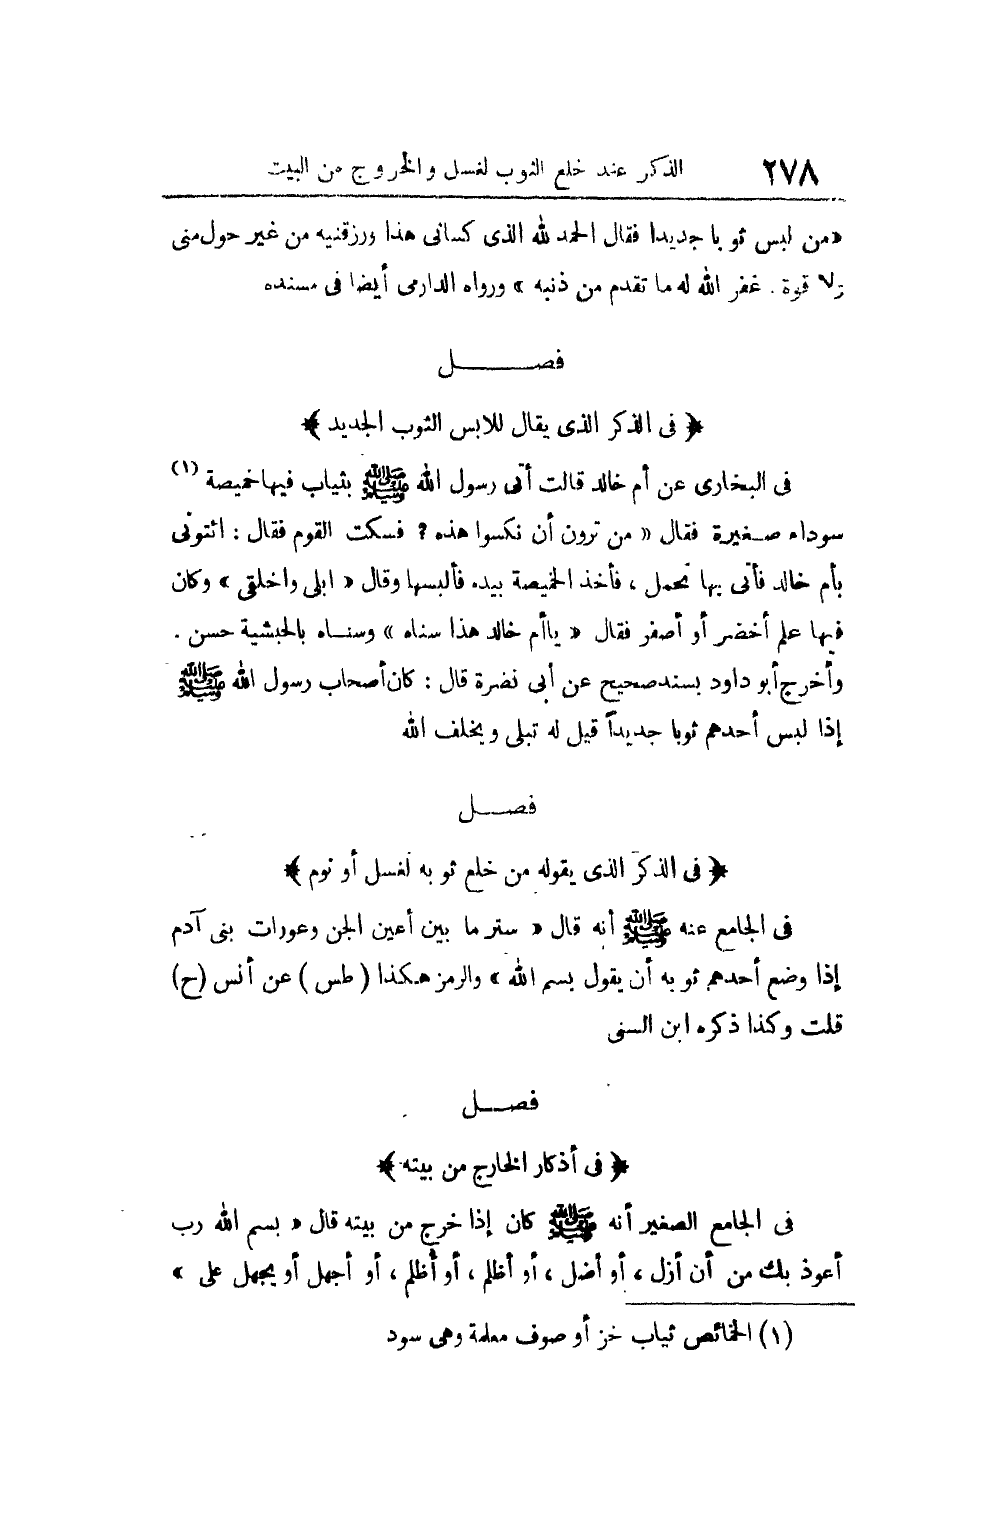 ٢٧٨ الذكر عند خلع الثوب لغسل والخروج من البيت
«من لبس ثوبا جديدا فقال الحمد لله الذى كسانى هذا ورزقنيه من غير حول منى
ولا قوة . غفر الله له ما تقدم من ذنبه » ورواه الدارمى أيضا فى مسنده
فصــــــل
﴿ فى الذكر الذى يقال للابس الثوب الجديد ﴾
فى البخارى عن أم خالد قالت أتى رسول الله ﷺ بثياب فيها خميصة (١)
سوداء صــغيرة فقال « من ترون أن نكسوا هذه ? فسكت القوم فقال : ائتونى
بأم خالد فأتى بها تحمل ، فأخذ الخميصة بيده فألبسها وقال « ابلى واخلقى » وكان
فيها علم أخضر أو أصفر فقال « ياأم خالد هذا سناه » وسنــاه بالحبشية حسن .
وأخرج أبو داود بسند صحيح عن أبى نضرة قال : كان أصحاب رسول الله ﷺ
إذا لبس أحدهم ثوبا جديداً قيل له تبلى ويخلف الله
فصــــل
﴿ فى الذكر الذى يقوله من خلع ثوبه لغسل أو نوم ﴾
فى الجامع عنه ﷺ أنه قال « ستر ما بين أعين الجن وعورات بنى آدم
إذا وضع أحدهم ثوبه أن يقول بسم الله » والرمز هكذا ( طس ) عن أنس (ح)
قلت وكذا ذكره ابن السنى
فصــــل
﴿ فى أذكار الخارج من بيته ﴾
فى الجامع الصغير أنه ﷺ كان إذا خرج من بيته قال « بسم الله رب
أعوذ بك من أن أزل ، أو أضل ، أو أظلم ، أو أُظلم ، أو أجهل أو يجهل على »
(١) الخمائص ثياب خز أو صوف معلمة وهى سود